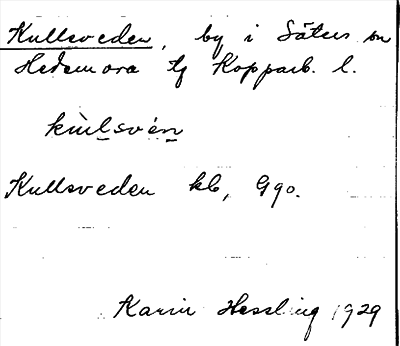 Kullsveden, by i Säters sn
Hedemora tg Kopparb. l.
kùlsvén
Kullsveden kb, Gqo.
Karin Hessling 1929